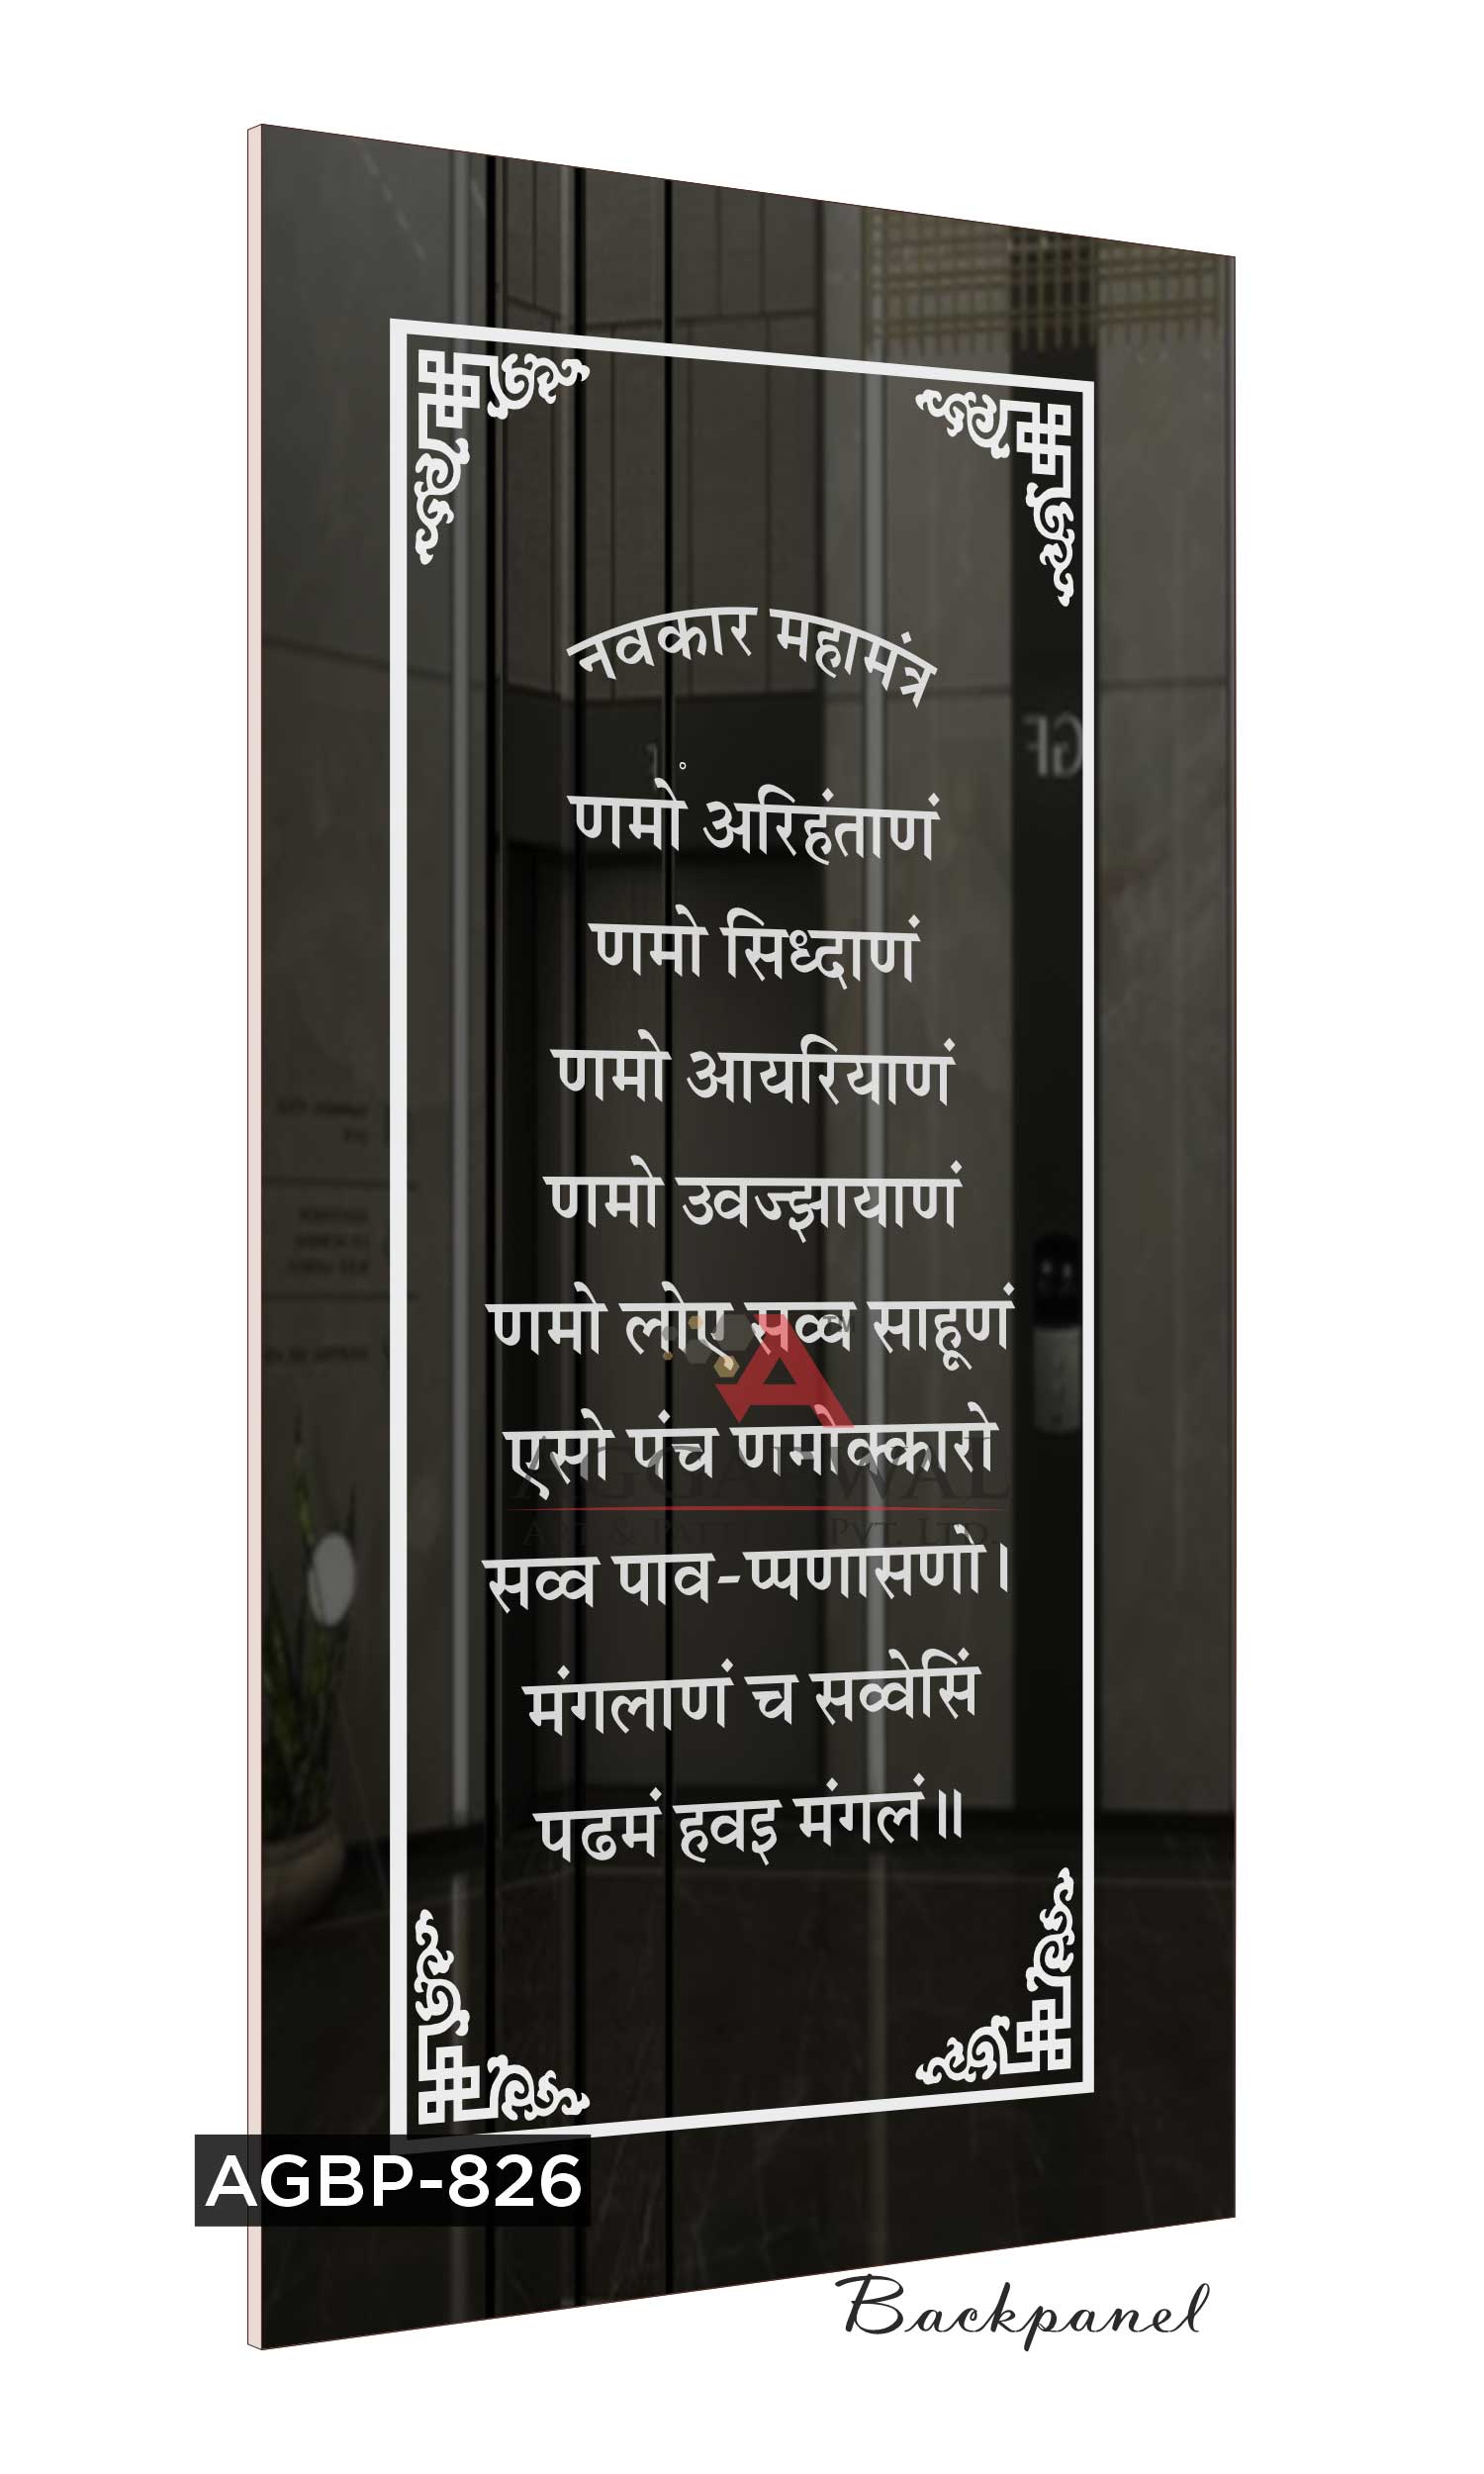 नवकार महामंत्र
णमो अरिहंताणं
णमो सिध्दाणं
णमो आयरियाणं
णमो उवज्झायाणं
णमो लोए सव्व साहूणं
एसो पंच णमोक्कारो
सव्व पाव-प्पणासणो।
मंगलाणं च सव्वेसिं
पढमं हवइ मंगलं॥
GF
A™
AGGARWAL
ART & PATTERN PVT. LTD.
AGBP-826
Backpanel